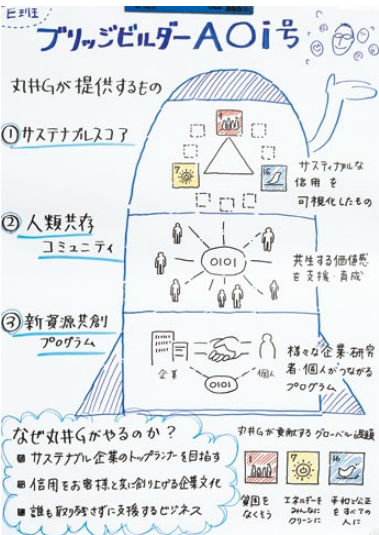 E班
ブリッジビルダーAOi号
丸井Gが提供するもの
①サステナブルスコア
1
7
16
サスティナブルな
信用を
可視化したもの
②人類共存
コミュニティ
OIOI
共生する価値感
を支援・育成
③新資源共創
プログラム
企業
個人
OIOI
様々な企業・研究
者・個人がつながる
プログラム
なぜ丸井Gがやるのか?
サステナブル企業のトップランナーを目指す
信用をお客様と共に創り上げる企業文化
誰も取り残さずに支援するビジネス
丸井Gが貢献するグローバル課題
1
7
16
貧困を
なくそう
エネルギーを
みんなに
クリーンに
平和と公正
をすべての
人に